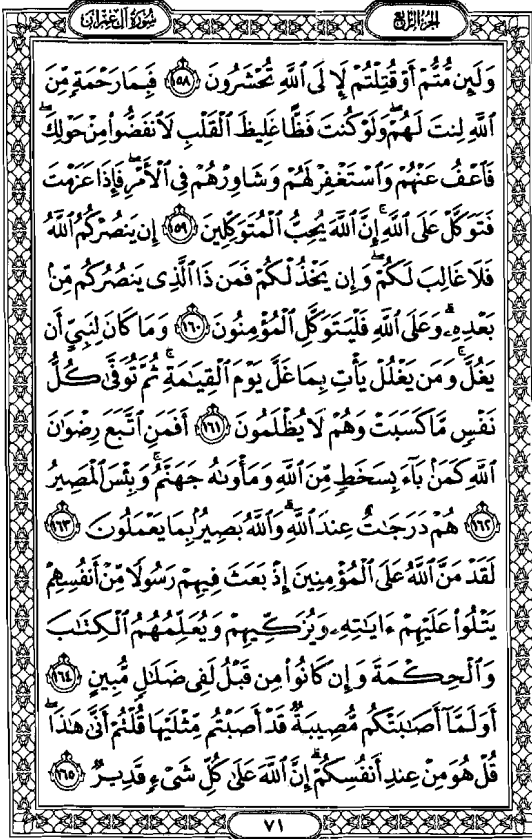 سُورَةُ آلِ عِمْرَانَ
الجُزْءُ الرَّابِعُ
وَلَئِن مُّتُّمْ أَوْ قُتِلْتُمْ لَإِلَى ٱللَّهِ تُحْشَرُونَ ١٥٨ فَبِمَا رَحْمَةٍ مِّنَ
ٱللَّهِ لِنتَ لَهُمْ ۖ وَلَوْ كُنتَ فَظًّا غَلِيظَ ٱلْقَلْبِ لَٱنفَضُّوا۟ مِنْ حَوْلِكَ ۖ
فَٱعْفُ عَنْهُمْ وَٱسْتَغْفِرْ لَهُمْ وَشَاوِرْهُمْ فِى ٱلْأَمْرِ ۖ فَإِذَا عَزَمْتَ
فَتَوَكَّلْ عَلَى ٱللَّهِ ۚ إِنَّ ٱللَّهَ يُحِبُّ ٱلْمُتَوَكِّلِينَ ١٥٩ إِن يَنصُرْكُمُ ٱللَّهُ
فَلَا غَالِبَ لَكُمْ ۖ وَإِن يَخْذُلْكُمْ فَمَن ذَا ٱلَّذِى يَنصُرُكُم مِّنۢ
بَعْدِهِۦ ۗ وَعَلَى ٱللَّهِ فَلْيَتَوَكَّلِ ٱلْمُؤْمِنُونَ ١٦٠ وَمَا كَانَ لِنَبِىٍّ أَن
يَغُلَّ ۚ وَمَن يَغْلُلْ يَأْتِ بِمَا غَلَّ يَوْمَ ٱلْقِيَٰمَةِ ۚ ثُمَّ تُوَفَّىٰ كُلُّ
نَفْسٍ مَّا كَسَبَتْ وَهُمْ لَا يُظْلَمُونَ ١٦١ أَفَمَنِ ٱتَّبَعَ رِضْوَٰنَ
ٱللَّهِ كَمَنۢ بَآءَ بِسَخَطٍ مِّنَ ٱللَّهِ وَمَأْوَىٰهُ جَهَنَّمُ ۚ وَبِئْسَ ٱلْمَصِيرُ
١٦٢ هُمْ دَرَجَٰتٌ عِندَ ٱللَّهِ ۗ وَٱللَّهُ بَصِيرٌۢ بِمَا يَعْمَلُونَ ١٦٣
لَقَدْ مَنَّ ٱللَّهُ عَلَى ٱلْمُؤْمِنِينَ إِذْ بَعَثَ فِيهِمْ رَسُولًا مِّنْ أَنفُسِهِمْ
يَتْلُوا۟ عَلَيْهِمْ ءَايَٰتِهِۦ وَيُزَكِّيهِمْ وَيُعَلِّمُهُمُ ٱلْكِتَٰبَ
وَٱلْحِكْمَةَ وَإِن كَانُوا۟ مِن قَبْلُ لَفِى ضَلَٰلٍ مُّبِينٍ ١٦٤
أَوَلَمَّآ أَصَٰبَتْكُم مُّصِيبَةٌ قَدْ أَصَبْتُم مِّثْلَيْهَا قُلْتُمْ أَنَّىٰ هَٰذَا ۖ
قُلْ هُوَ مِنْ عِندِ أَنفُسِكُمْ ۗ إِنَّ ٱللَّهَ عَلَىٰ كُلِّ شَىْءٍ قَدِيرٌ ١٦٥
٧١